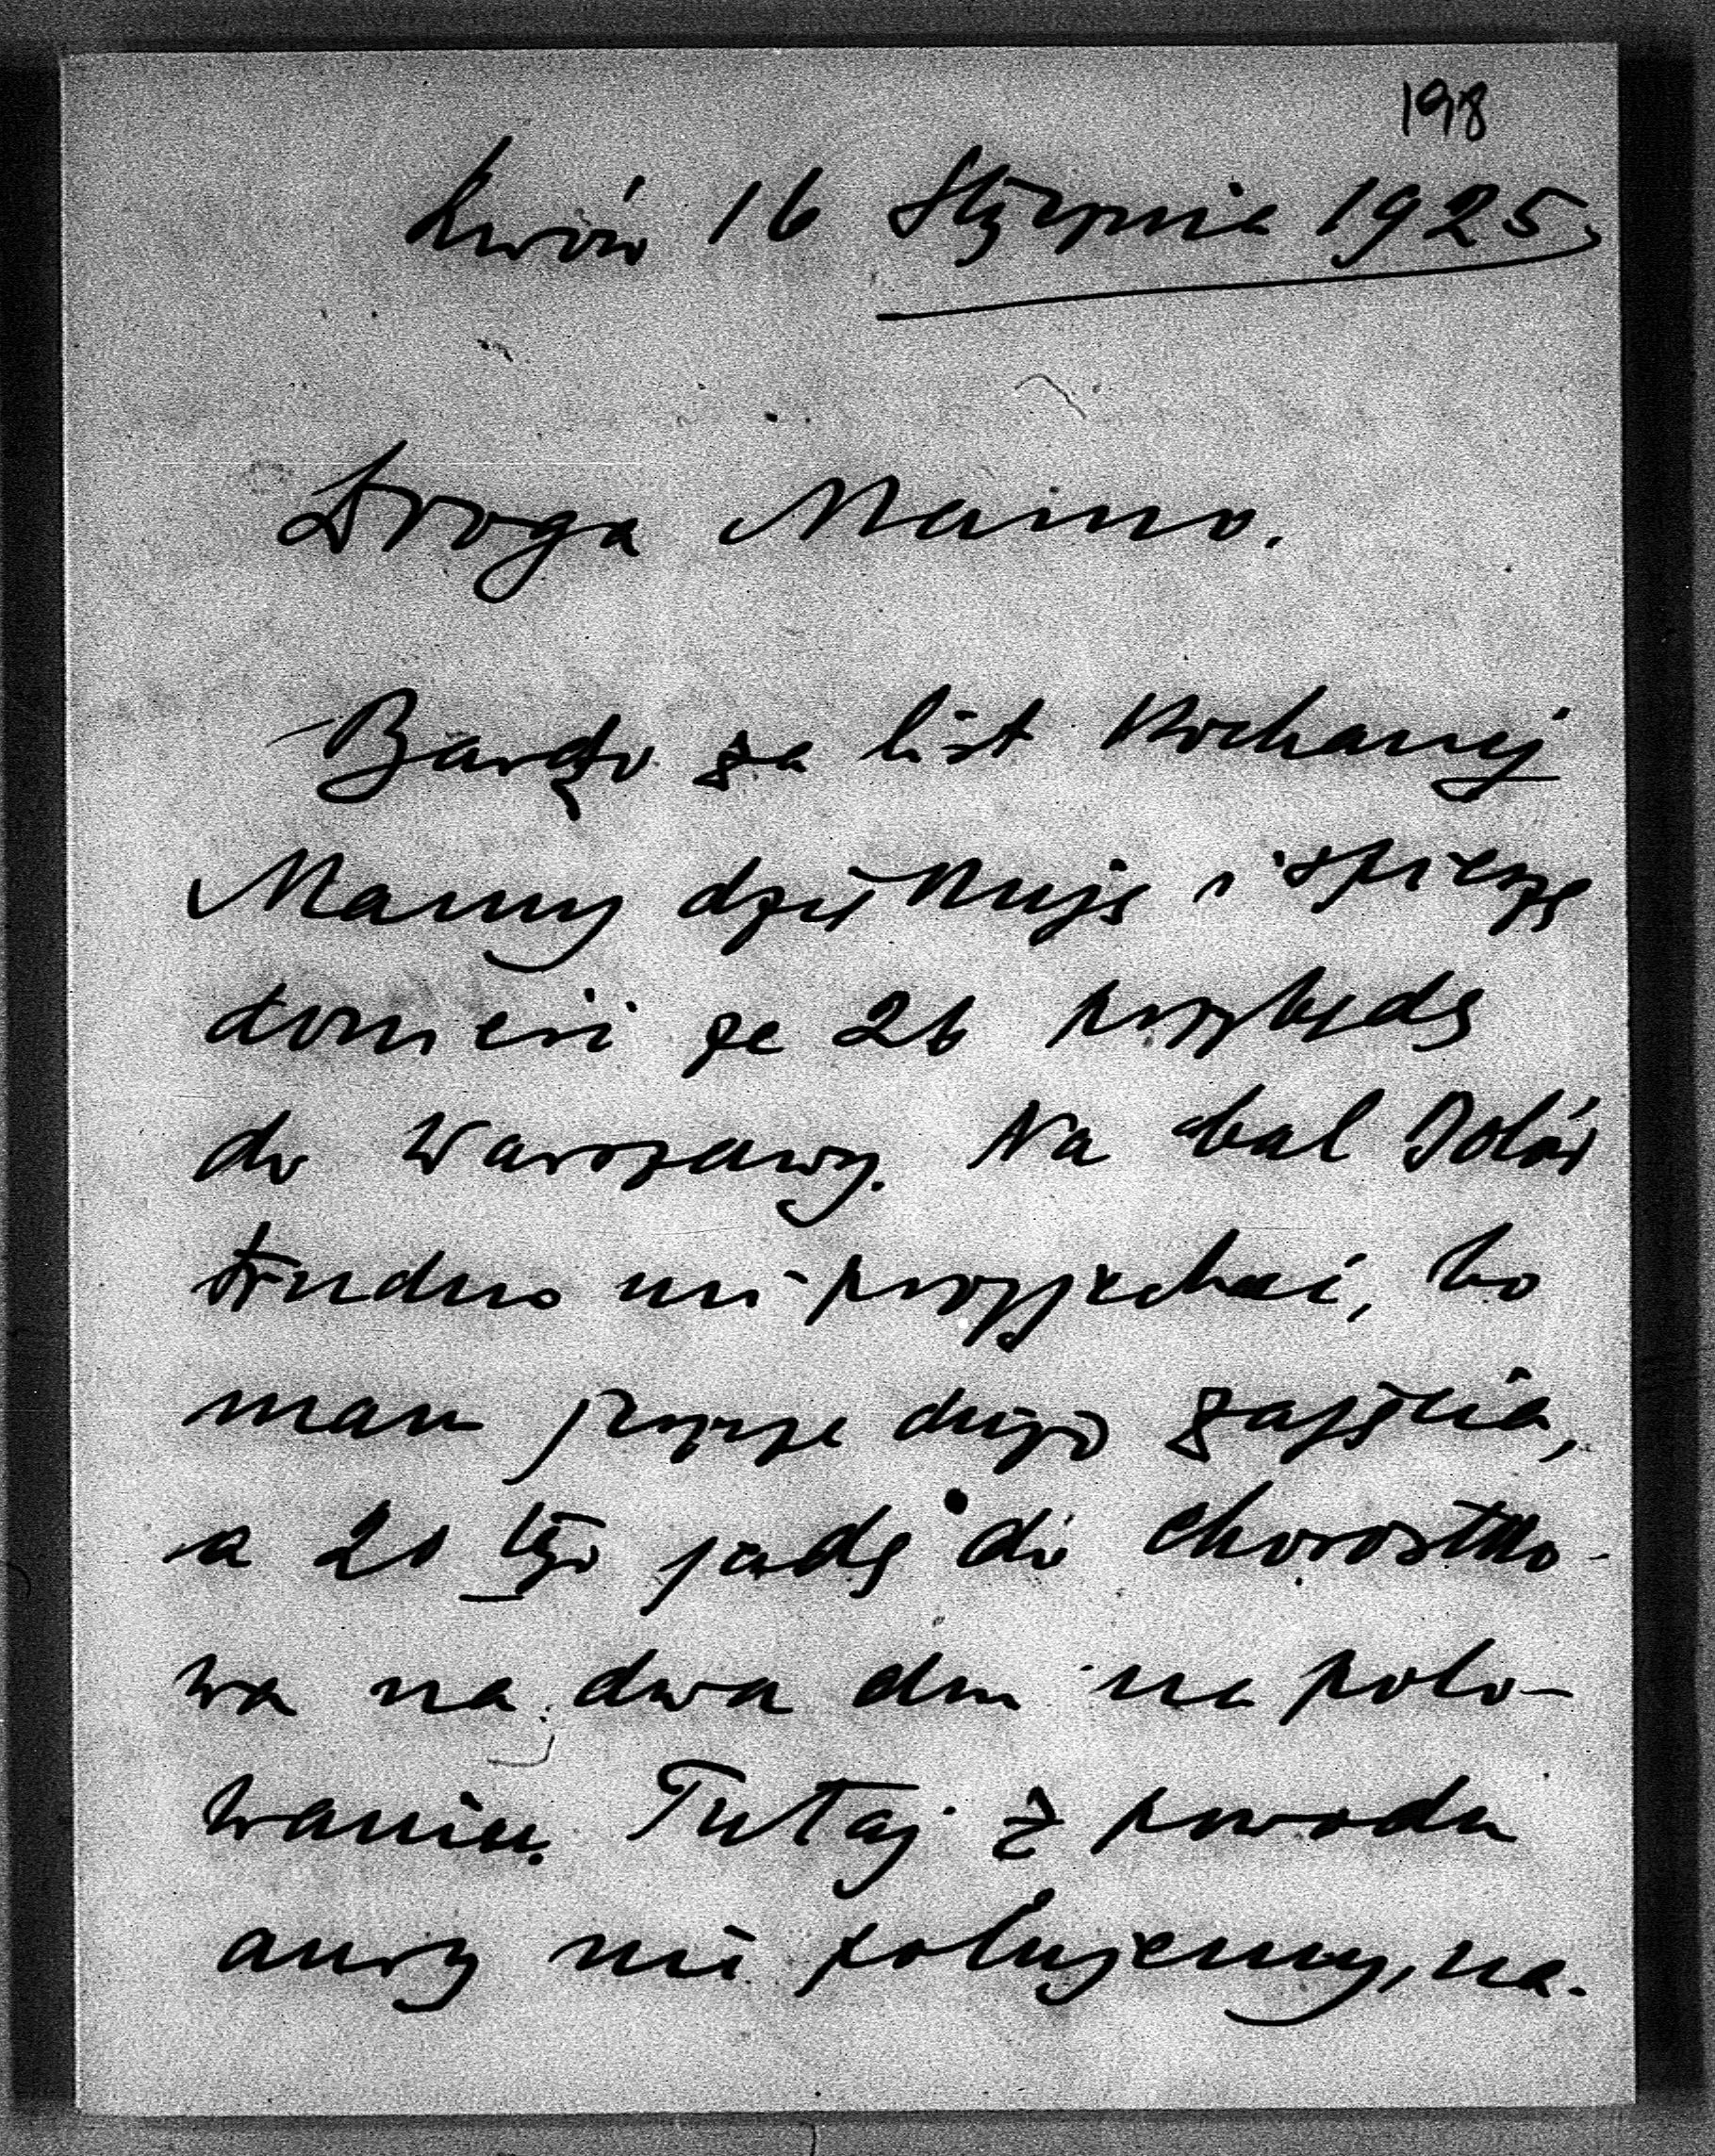 198
Lwów 16 Stycznia 1925,
Droga Mamo.
Bardzo za list Kochanej
Mamy dziękuję i spieszę
donieść że 26 przybędę
do Warszawy. Na bal
trudno mi przyjechać, bo
mam jeszcze dużo zajęcia,
a 20 tego jadę do Chorostko-
wa na dwa dni na polo-
wanie. Tutaj z powodu
aury nie polujemy, na.